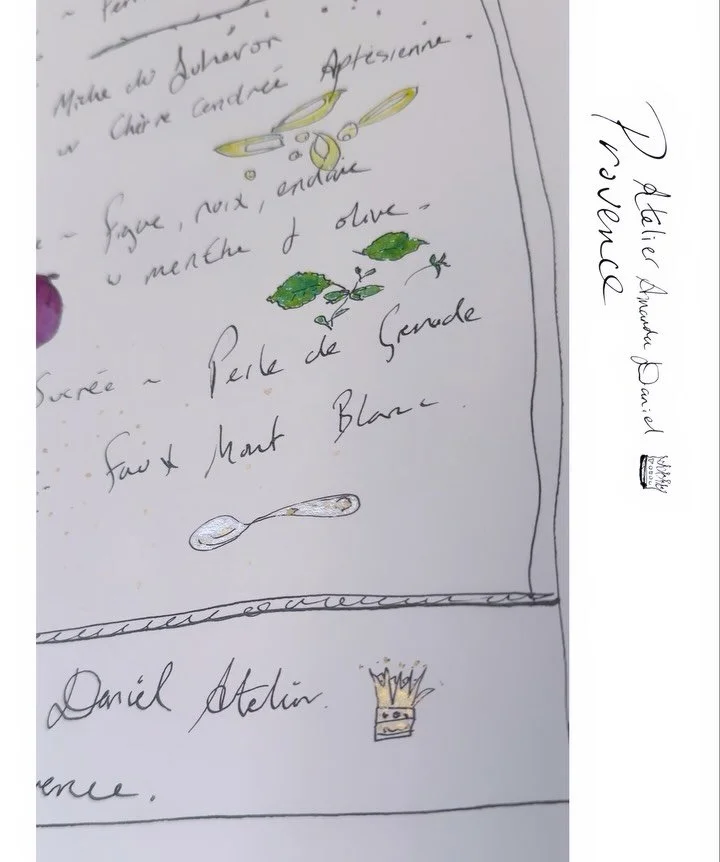 Miche du Luberon
Chèvre cendrée Aptésienne.
~ figue, noix, endive
menthe & olive -
Sucrée ~ Perle de Grenade
Faux Mont Blanc
Daniel Atelier.
ence.
Atelier Amanda Daniel
Provence